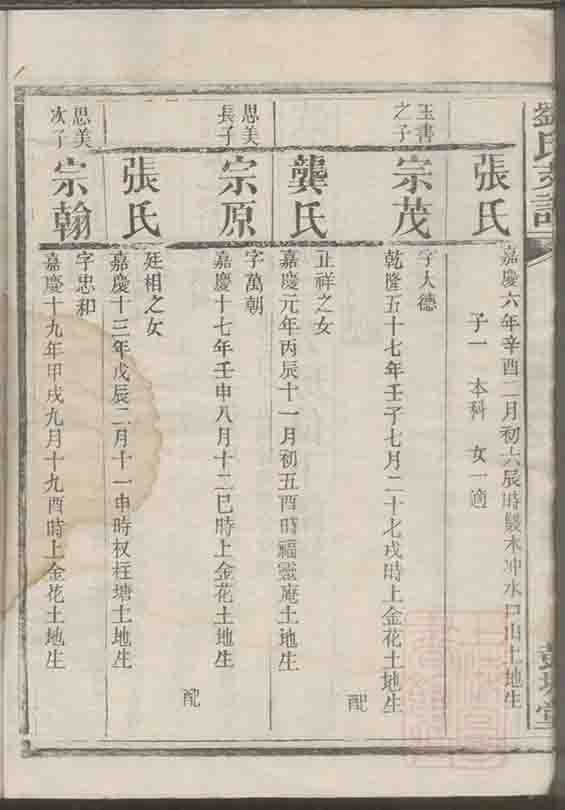 劉氏支譜
張氏
嘉慶六年辛酉二月初六辰時髮木冲水口山土地生
子一 本科 女一適
玉書之子
宗茂
字大德
乾隆五十七年壬子七月二十七戌時上金花土地生
配
龔氏
正祥之女
嘉慶元年丙辰十一月初五酉時福靈庵土地生
思美長子
宗原
字萬朝
嘉慶十七年壬申八月十二巳時上金花土地生
配
張氏
廷相之女
嘉慶十三年戊辰二月十一申時权柱塘土地生
思美次子
宗翰
字忠和
嘉慶十九年甲戌九月十九酉時上金花土地生